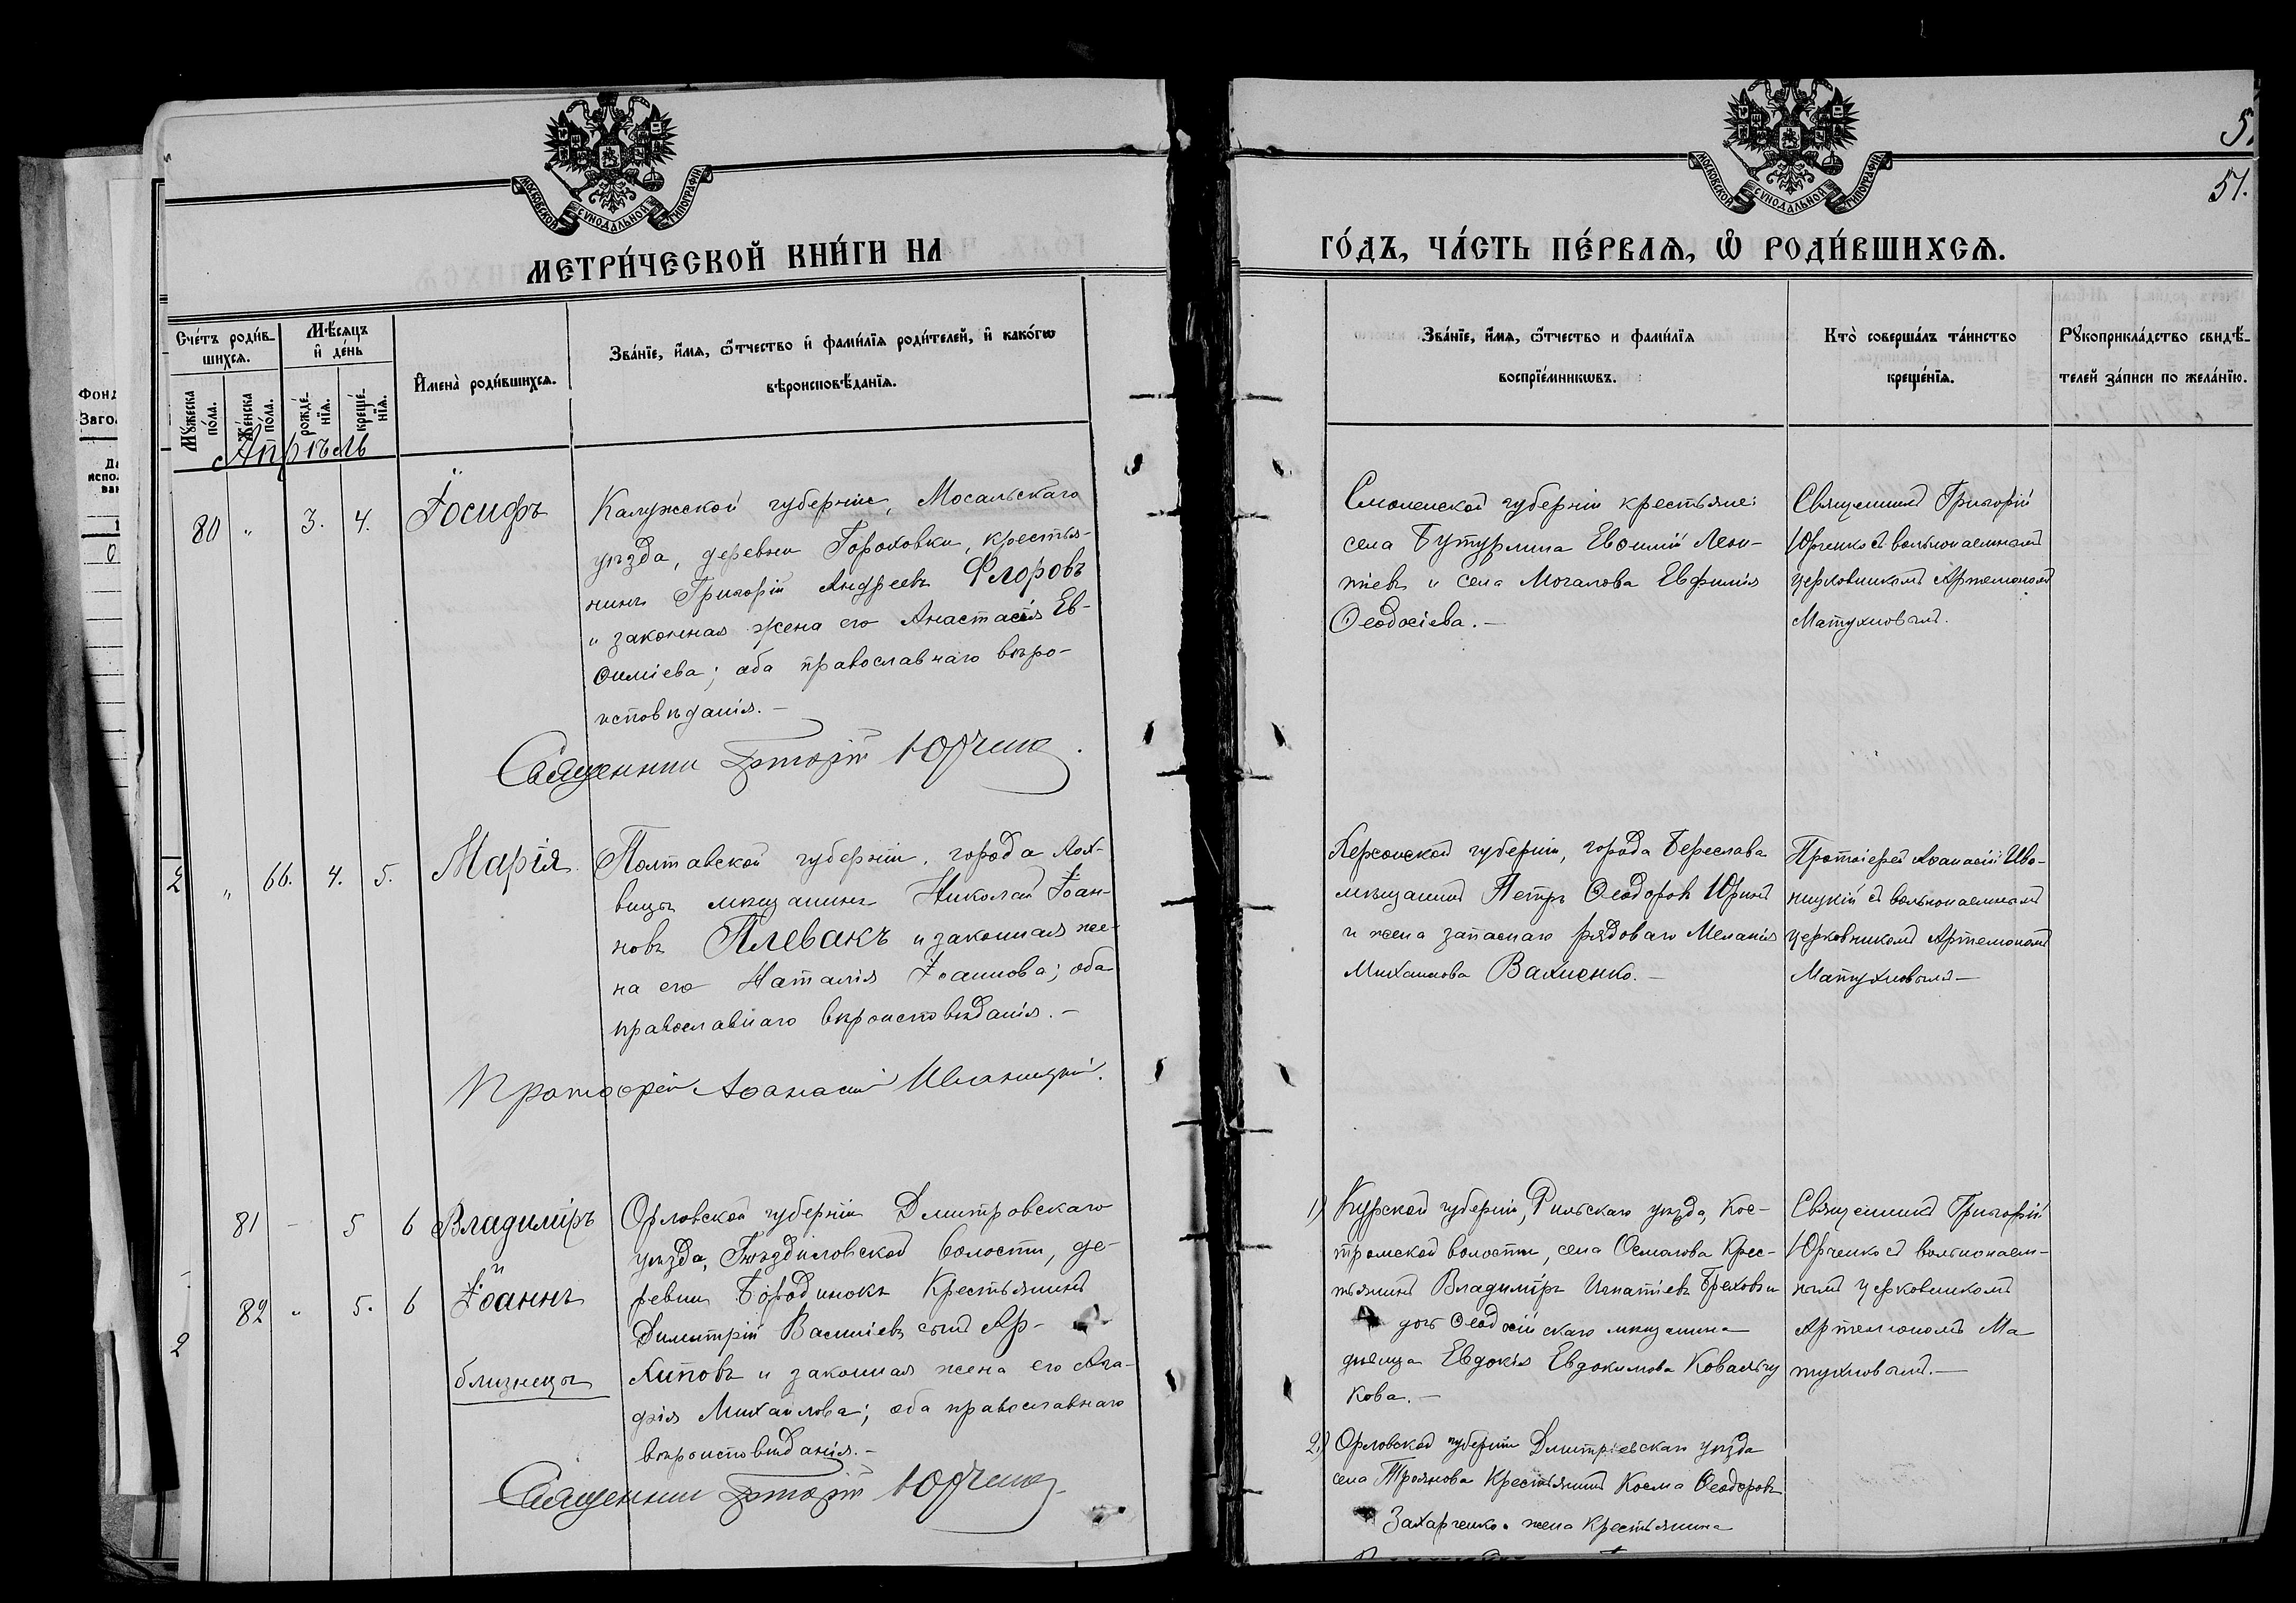 МОСКОВСКОЙ СѴНОДАЛЬНОЙ ТИПОГРАФІИ
МЕТРИ́ЧЕСКОЙ КНИ́ГИ НА
Сче́тъ роди́в-
шихся.
Мѣ́сяцъ
и҆ де́нь
Мꙋ́жеска
по́ла.
Же́нска
по́ла.
рожде́-
нїѧ.
креще́-
нїѧ.
И҆мена̀ роди́вшихсѧ.
Зва́нїе, и҆́мѧ, ѻ҆́тчество и҆ фами́лїѧ роди́телей, и҆ како́гѡ
вѣроисповѣ́данїѧ.
Апрѣль
80 " 3. 4. Іосифъ
Калужской губерніи, Мосальскаго
уѣзда, деревни Гороховки, крестья-
нинъ Григорій Андреевъ Флоровъ
и законная жена его Анастасія Ев-
ѳиміева; оба православнаго вѣро-
исповѣданія.-
Священник Григорій Юрченко.
2 " 66. 4. 5. Марія
Полтавской губерніи, города Лох-
вицы мѣщанинъ Николай Іоан-
новъ Плевакъ и законная же-
на его Наталія Іоаннова; оба
православнаго вѣроисповѣданія.-
Протоіерей Аѳанасій Иваницкій.
81 - 5 6 Владиміръ
и
82 " 5. 6 Іоаннъ
близнецы
Орловской губерніи Дмитровскаго
уѣзда, Гнѣздиловской волости, де-
ревни Бородинокъ Крестьянинъ
Димитрій Василіевъ сынъ Ар-
хиповъ и законная жена его Ага-
фія Михайлова; оба православнаго
вѣроисповѣданія.-
Священник Григорій Юрченко
2
Фонд
Заго
МОСКОВСКОЙ СѴНОДАЛЬНОЙ ТИПОГРАФІИ
51.
ГО́ДЪ, ЧА́СТЬ ПЕ́РВАѦ, Ѡ҆ РОДИ́ВШИХСѦ.
Зва́нїе, и҆́мѧ, ѻ҆́тчество и фами́лїѧ
воспрїе́мникѡвъ.
Кто̀ соверша́лъ та́инство
креще́нїѧ.
Рꙋкоприкла́дство свидѣ́-
телей за́писи по жела́нїю.
Смоленской губерніи крестьяне:
села Бутурлина Евѳимій Леон-
тіевъ и села Мочалова Евфимія
Ѳеодосіева.-
Священникъ Григорій
Юрченко съ вольнонаемнымъ
церковникомъ Артемономъ
Матухновымъ.
Херсонской губерніи, города Береслава
мѣщанинъ Петръ Ѳеодоровъ Юринъ
и жена запаснаго рядоваго Меланія
Михаилова Вахненко.-
Протоіерей Аѳанасій Ива-
ницкій съ вольнонаемнымъ
церковникомъ Артемономъ
Матухновымъ-
1) Курской губерніи, Рыльскаго уѣзда, Кос-
тромской волости, села Осмалова Крес-
тьянинъ Владиміръ Игнатіевъ Греховъ и
дочь Ѳеодосійскаго мѣщанина
дѣвица Евдокія Евдокимова Ковальчу
кова.-
Священникъ Григорій
Юрченко съ вольнонаем-
нымъ церковникомъ
Артемономъ Ма
тухновымъ.-
2) Орловской губерніи Дмитріевскаго уѣзда
села Троянова Крестьянинъ Косма Ѳеодоровъ
Захарченко и жена Крестьянина